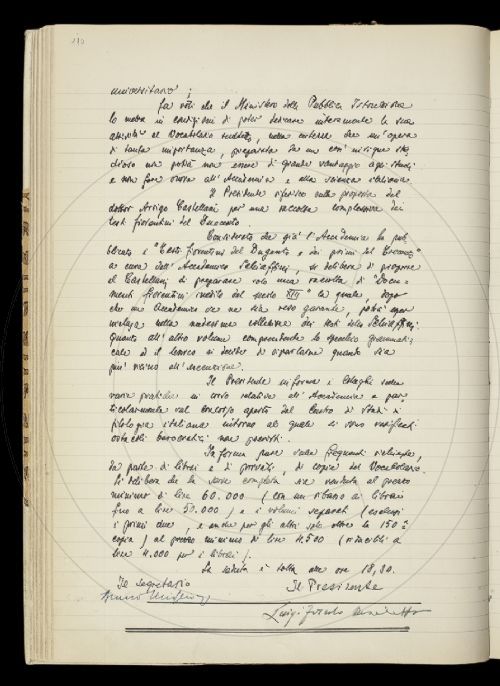 110
universitario;
fa voti che il Ministero della Pubblica Istruzione
lo metta in condizioni di poter dedicare interamente la sua
attività al Vocabolario suddetto, nella certezza che un'opera
di tanta importanza, preparata da un così insigne stu-
dioso non potrà non essere di grande vantaggio agli studi
e non fare onore all'Accademia e alla scienza italiana.
Il Presidente riferisce sulla proposta del
dottor Arrigo Castellani per una raccolta complessiva dei
testi fiorentini del Duecento.
Considerato che già l'Accademia ha pub-
blicato i "Testi fiorentini del Dugento e dei primi del Trecento"
a cura dell'Accademico Schiaffini, si delibera di proporre
al Castellani di preparare solo una raccolta di "Docu-
menti fiorentini inediti del secolo XIII" la quale, dopo
che un Accademico se ne sia reso garante, potrà esser
inclusa nella medesima collezione dei testi dello Schiaffini.
Quanto all'altro volume comprendente lo spoglio grammati-
cale ed il lessico si decide di riparlarne quando sia
più vicino all'esecuzione.
Il Presidente informa i Colleghi sulle
varie pratiche in corso relative all'Accademia e par-
ticolarmente sul concorso aperto dal Centro di studi di
filologia italiana intorno al quale si sono verificati
ostacoli burocratici non previsti.
Informa pure sulle frequenti richieste,
da parte di librai e di privati, di copie del Vocabolario.
Si delibera che la serie completa sia venduta al prezzo
minimo di lire 60.000 (con un ribasso ai librai
fino a lire 50.000) e i volumi separati (esclusi
i primi due, e anche per gli altri solo oltre la 150ª
copia) al prezzo minimo di lire 4.500 (riducibili a
lire 4.000 per i librai).
La seduta è tolta alle ore 18,30.
Il Segretario Il Presidente
Bruno Migliorini
Luigi Foscolo Benedetto